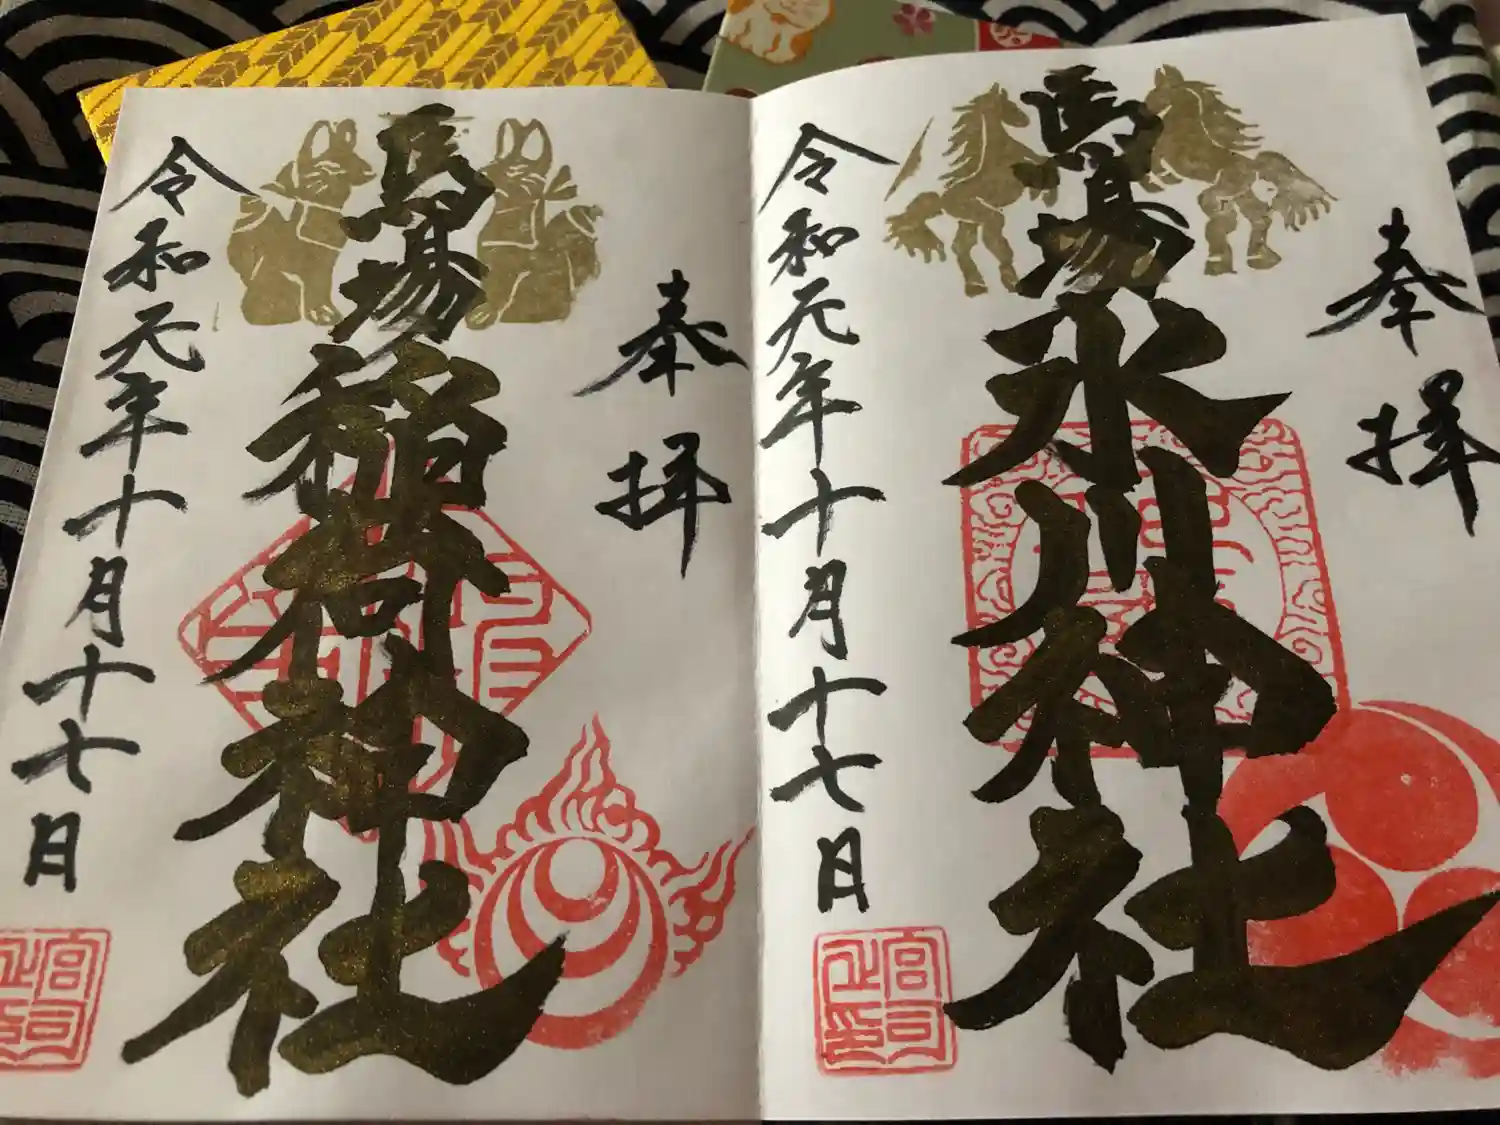 奉拝
馬場氷川神社
令和元年十月十七日
宮司之印
奉拝
馬場稲荷神社
令和元年十月十七日
宮司之印